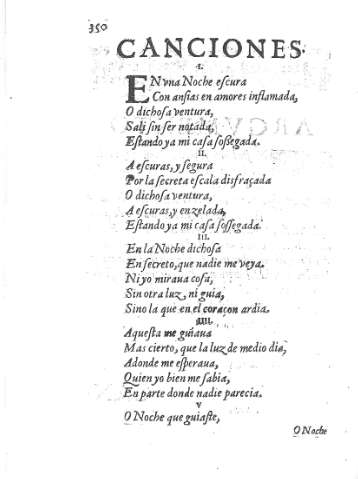 350
CANCIONES.
I.
EN vna Noche escura
Con ansias en amores inflamada,
O dichosa ventura,
Sali sin ser notada,
Estando ya mi casa sossegada.
II.
A escuras, y segura
Por la secreta escala disfraçada
O dichosa ventura,
A escuras, y enzelada,
Estando ya mi casa sossegada.
III.
En la Noche dichosa
En secreto, que nadie me veya.
Ni yo miraua cosa,
Sin otra luz, ni guia,
Sino la que en el coraçon ardia.
IIII.
Aquesta me guiaua
Mas cierto, que la luz de medio dia,
Adonde me esperaua,
Quien yo bien me sabia,
En parte donde nadie parecia.
V
O Noche que guiaste,
O Noche